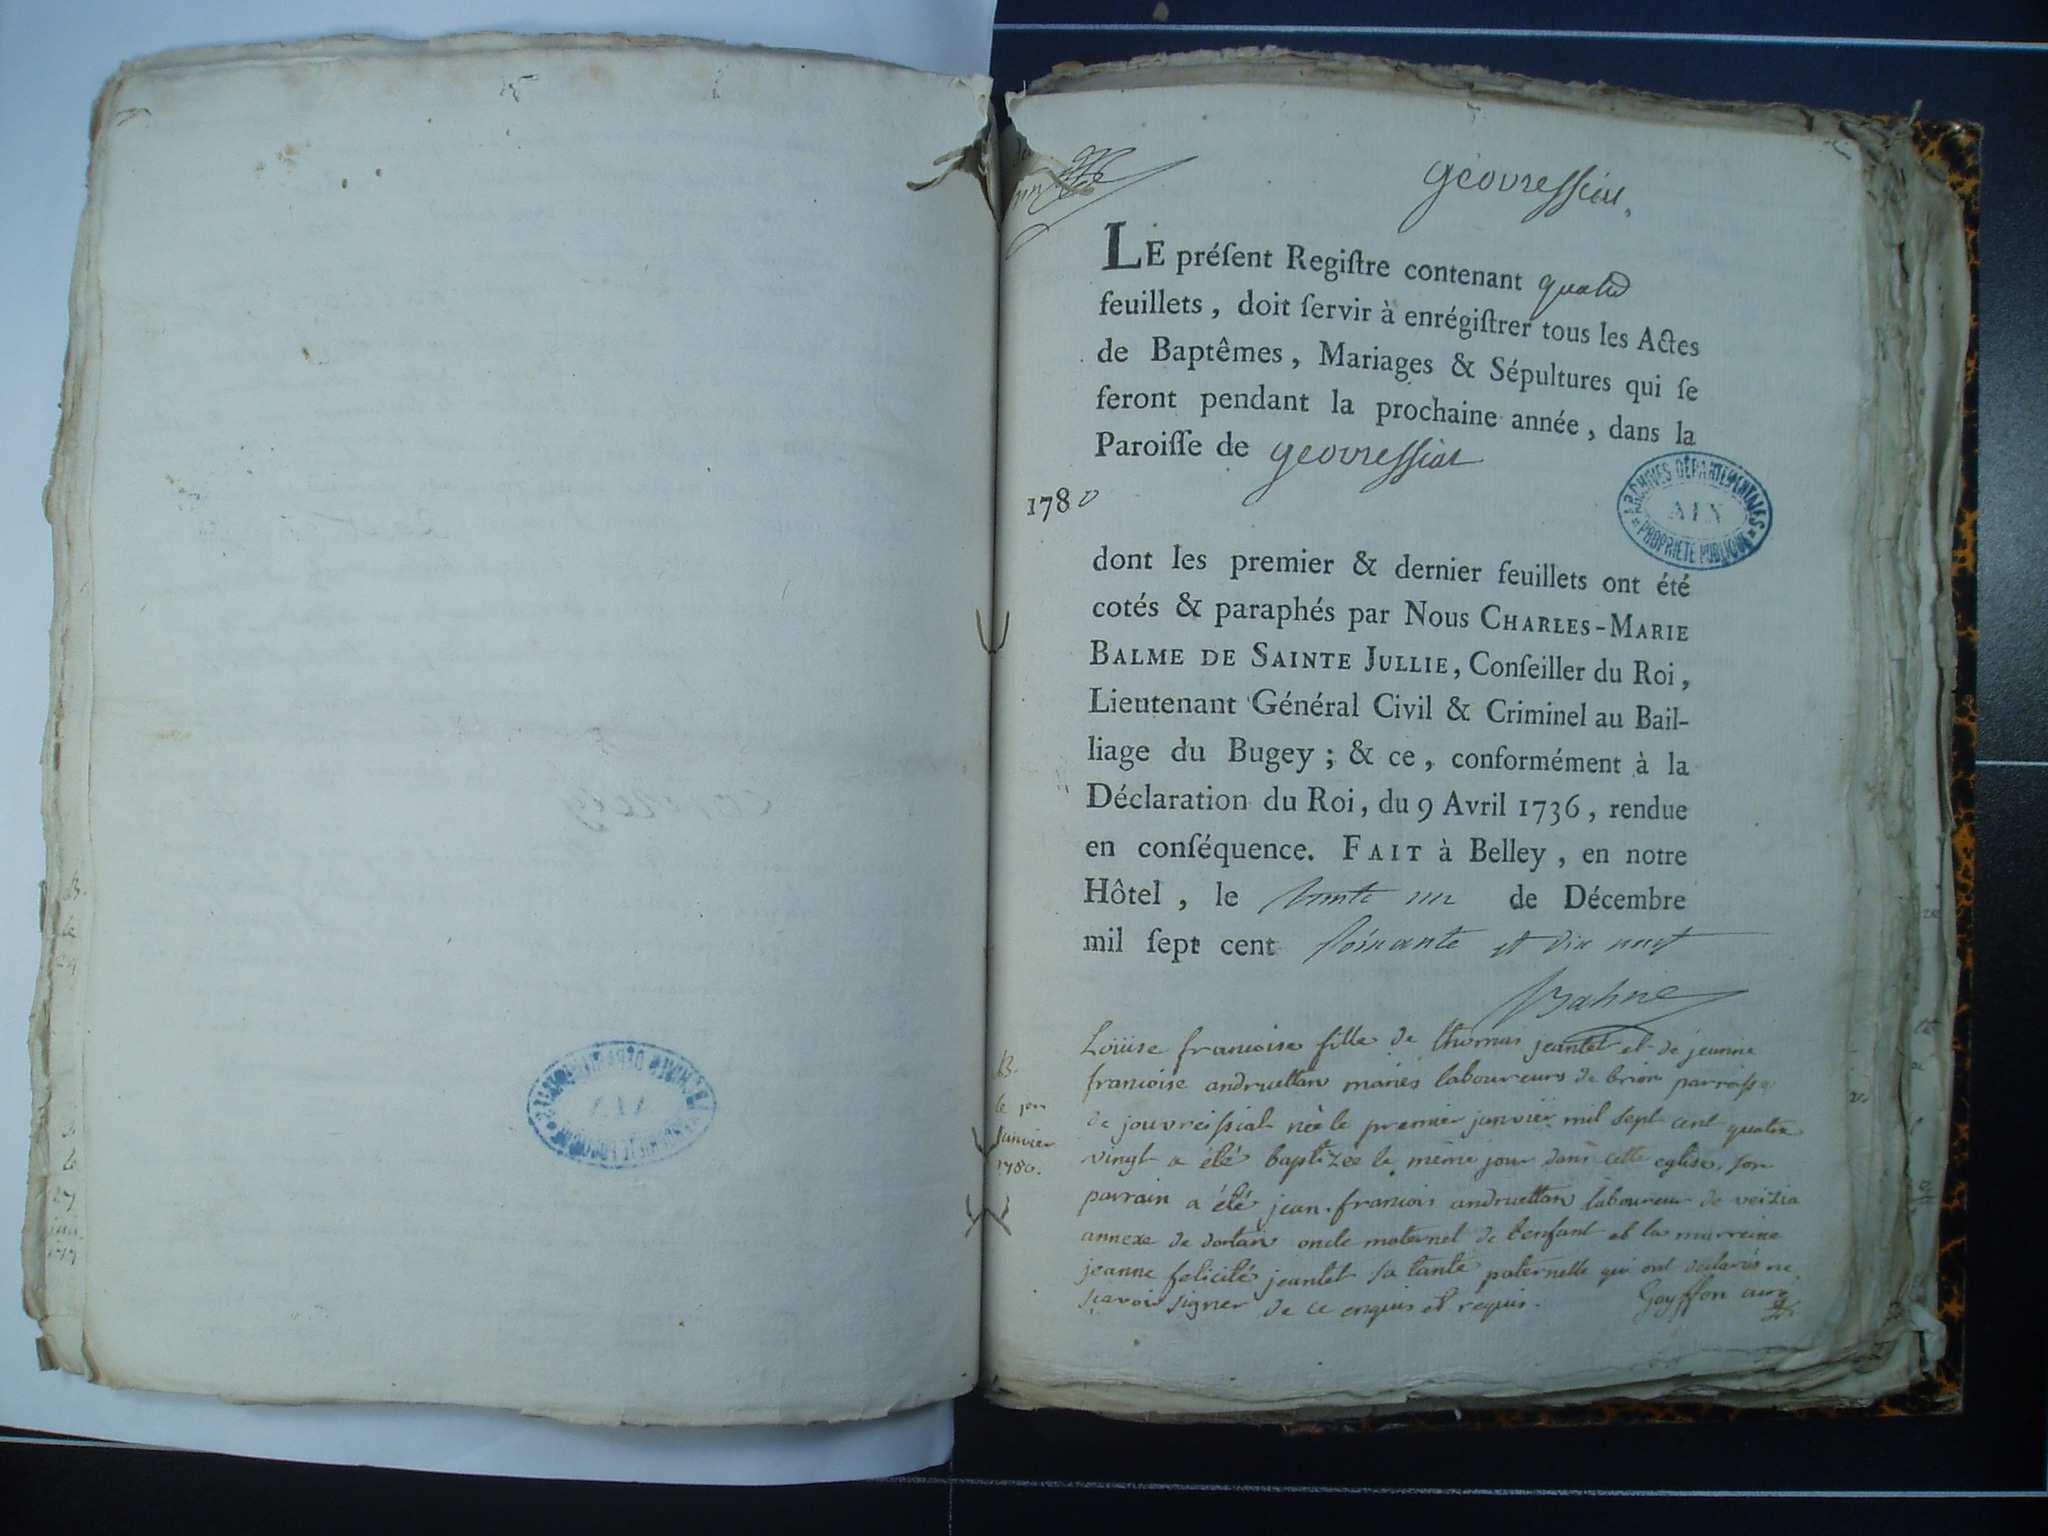 geovressiat
LE préſent Regiſtre contenant quatre
feuillets, doit ſervir à enrégiſtrer tous les Actes
de Baptêmes, Mariages & Sépultures qui ſe
feront pendant la prochaine année, dans la
Paroiſſe de geovressiat
1780
ARCHIVES DÉPARTEMENTALES
AIN
PROPRIÉTÉ PUBLIQUE
dont les premier & dernier feuillets ont été
cotés & paraphés par Nous CHARLES-MARIE
BALME DE SAINTE JULLIE, Conſeiller du Roi,
Lieutenant Général Civil & Criminel au Bail-
liage du Bugey ; & ce, conformément à la
Déclaration du Roi, du 9 Avril 1736, rendue
en conſéquence. FAIT à Belley, en notre
Hôtel, le trente un de Décembre
mil ſept cent soixante et dix neuf
Balme
B.
le 1er
janvier
1780.
Loüise francoise fille de thomas jeantet et de jeanne
francoise andruettan mariés laboureurs de brion parroisse
de jouvreissiat née le premier janvier mil sept cent quatre
vingt a été baptizée le même jour dans cette eglise. son
parrain a été jean-francois andruettan laboureur de veizia
annexe de dortan oncle maternel de l'enfant et la marreine
jeanne felicité jeantet sa tante paternelle qui ont declarés ne
scavoir signer de ce enquis et requis. Goyffon curé